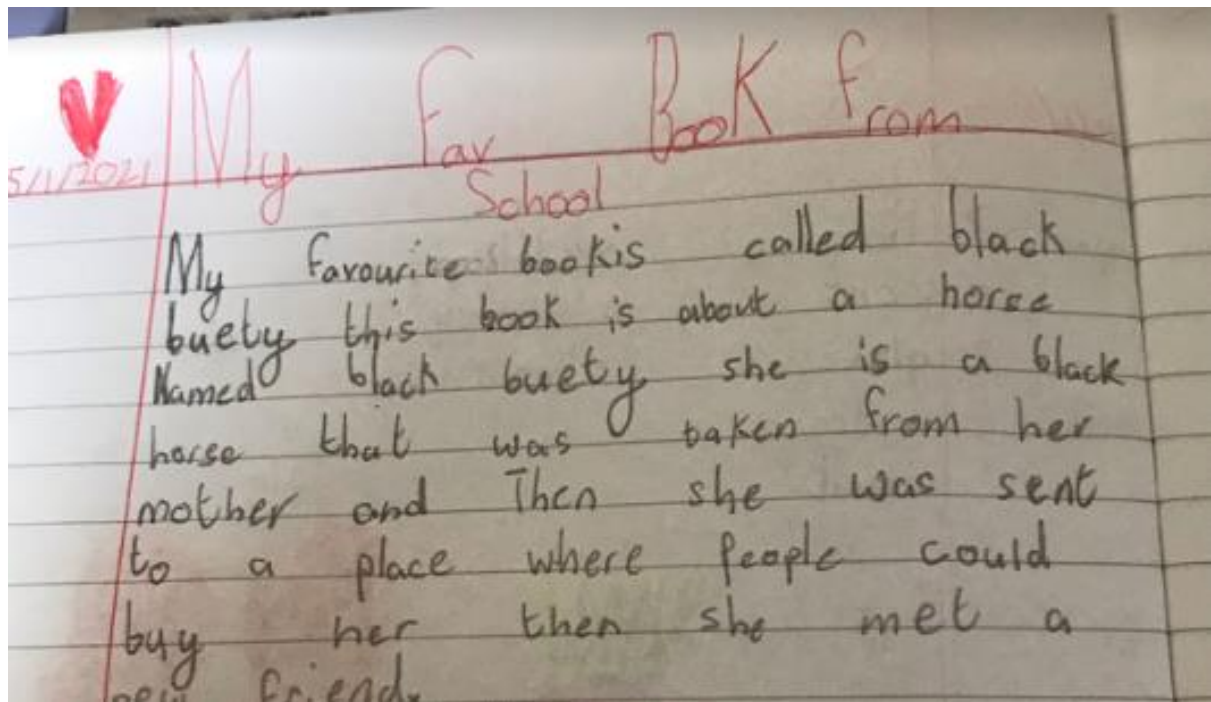 My Fav Book from
5/1/2021
School
My favourite bookis called black
buety this book is about a horse
Named black buety she is a black
horse that was taken from her
mother and Then she was sent
to a place where people could
buy her then she met a
new friend.